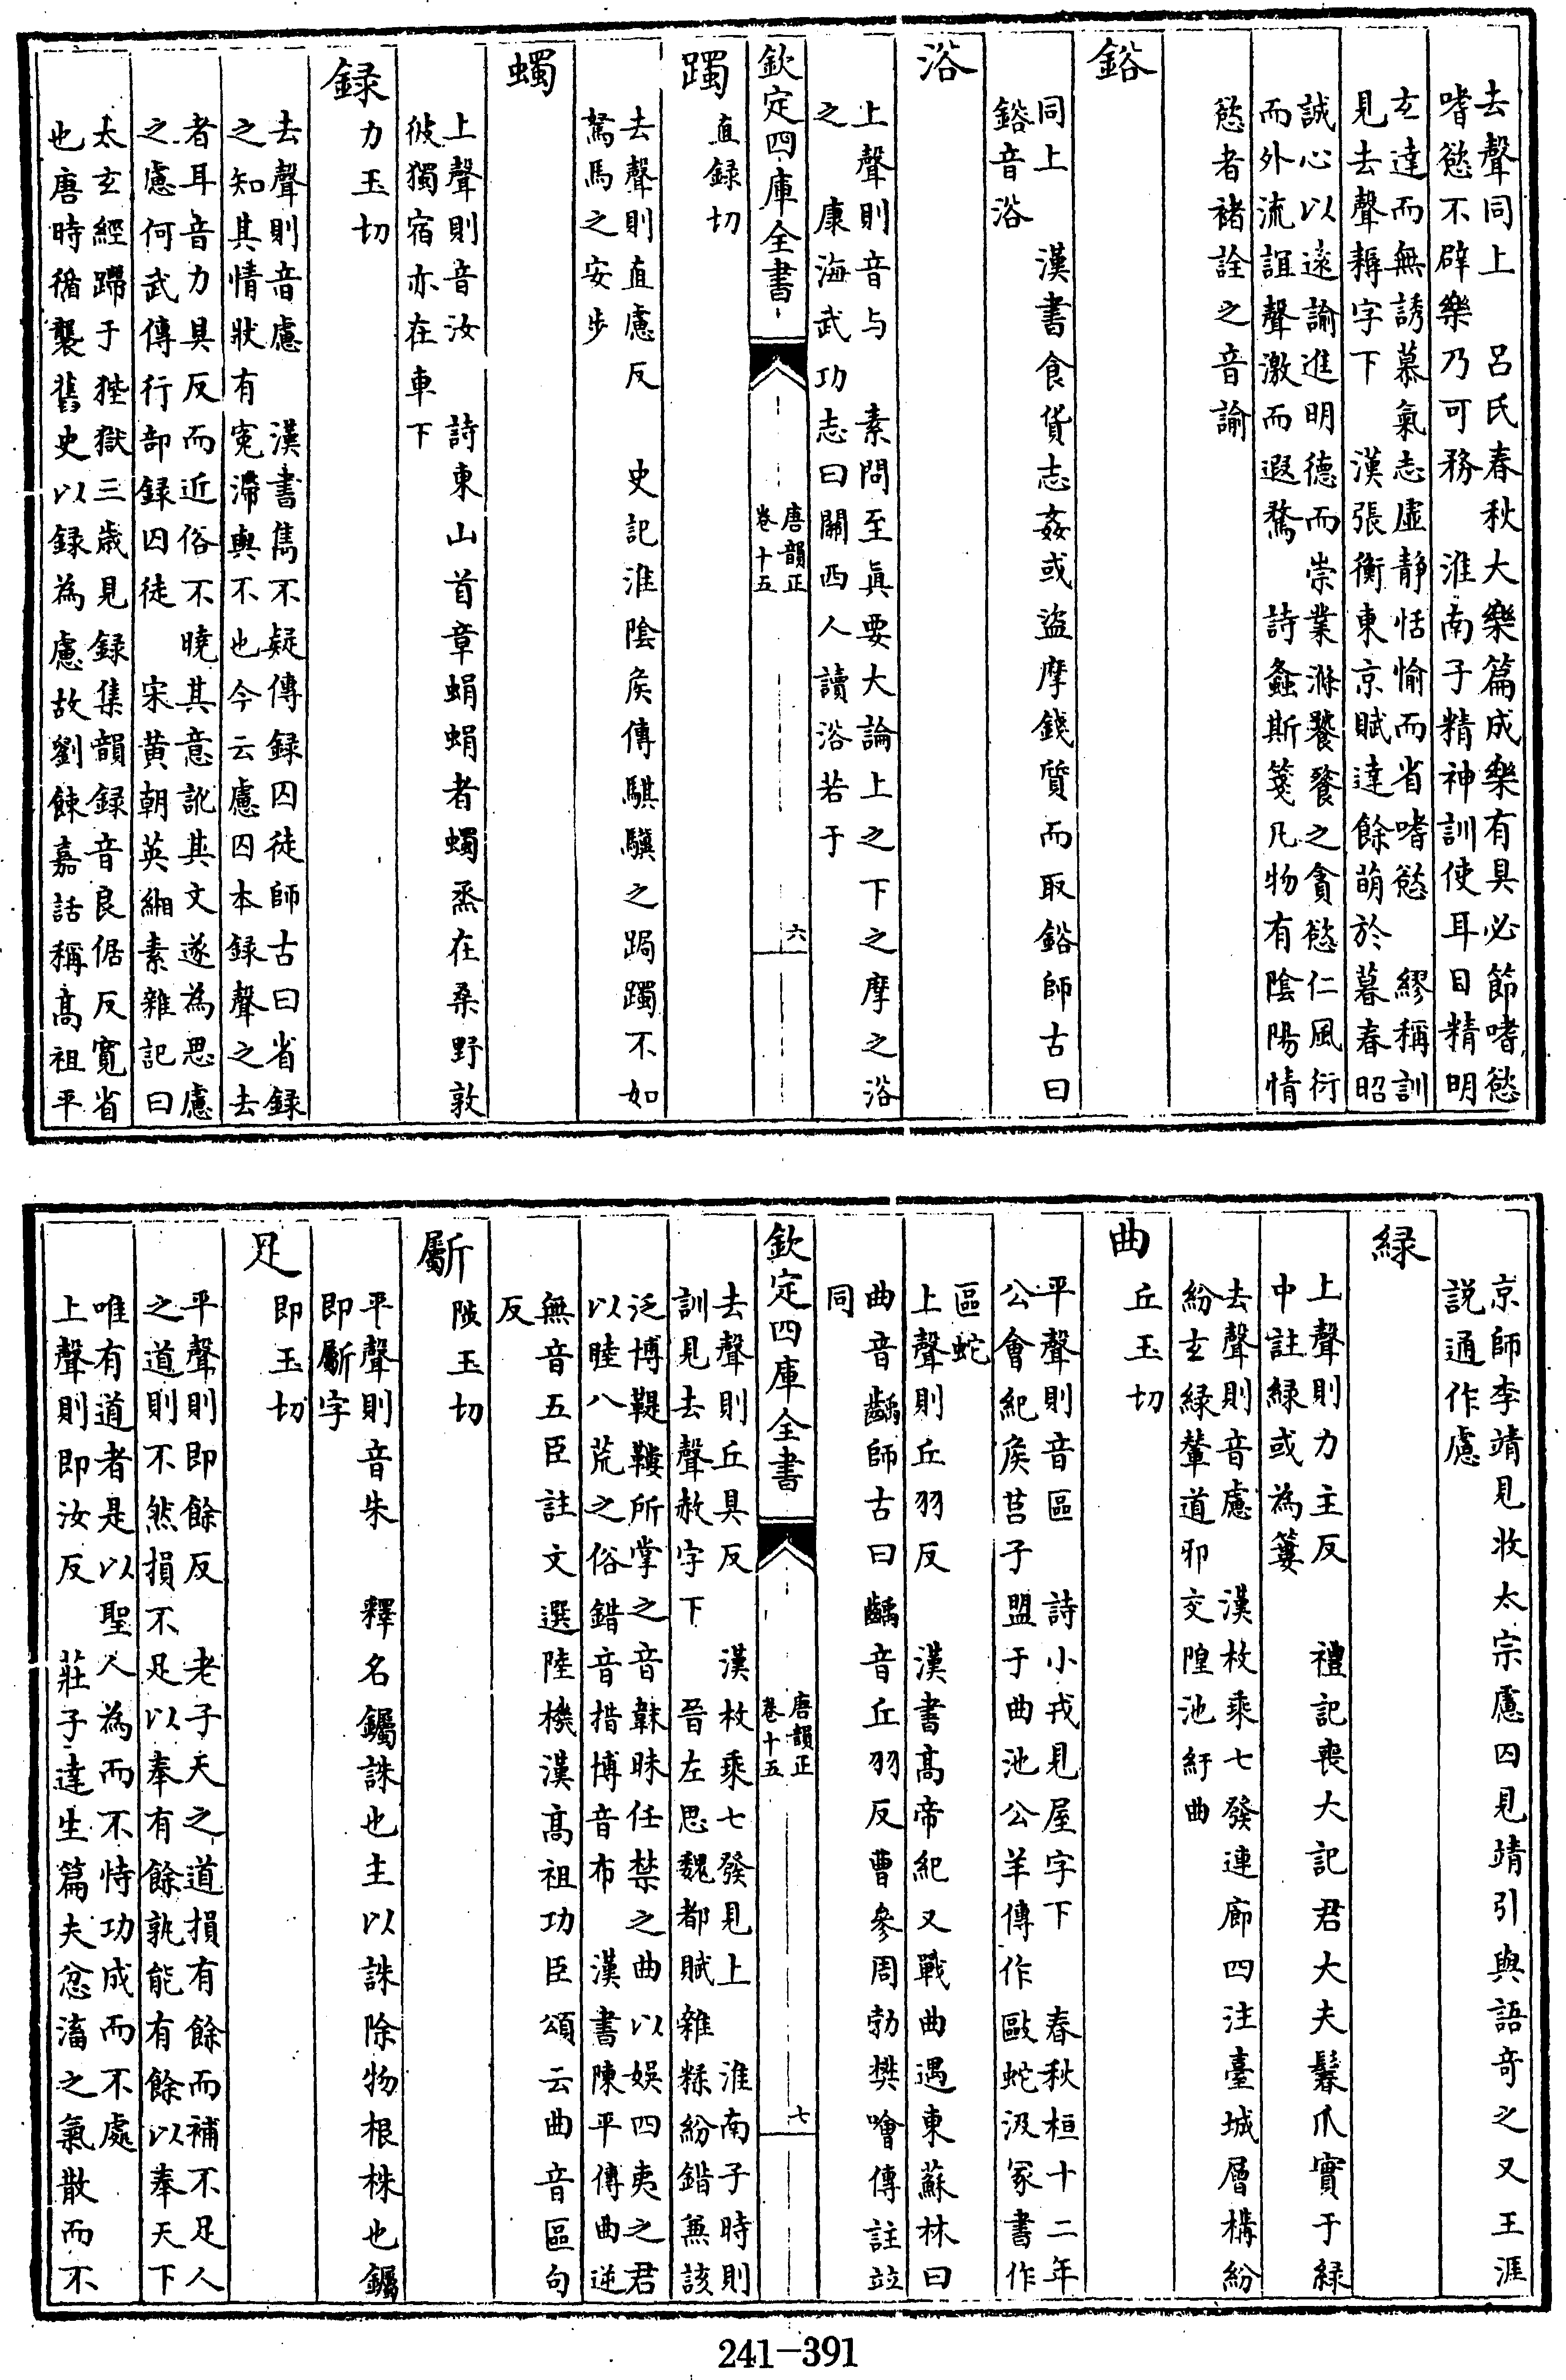 去聲同上　呂氏春秋大樂篇成樂有具必節嗜慾
嗜慾不辟樂乃可務　淮南子精神訓使耳目精明
玄達而無誘慕氣志虛靜恬愉而省嗜慾　繆稱訓
見去聲耨字下　漢張衡東京賦達餘萌於暮春昭
誠心以遠諭進明德而崇業滌饕餮之貪慾仁風衍
而外流誼聲激而遐騖　詩螽斯箋凡物有陰陽情
慾者褚詮之音諭
鋊
同上　漢書食貨志姦或盜摩錢質而取鋊師古曰
鋊音浴
浴
上聲則音与　素問至真要大論上之下之摩之浴
之　康海武功志曰關西人讀浴若于
欽定四庫全書
唐韻正
卷十五
六
躅
直録切
去聲則直慮反　史記淮陰侯傳騏驥之跼躅不如
駑馬之安步
蠋
上聲則音汝　詩東山首章蜎蜎者蠋烝在桑野敦
彼獨宿亦在車下
録
力玉切
去聲則音慮　漢書雋不疑傳録囚徒師古曰省録
之知其情狀有寃滯與不也今云慮囚本録聲之去
者耳音力具反而近俗不曉其意訛其文遂為思慮
之慮何武傳行部録囚徒　宋黄朝英緗素雜記曰
太玄經蹛于狴獄三歳見録集韻録音良倨反寛省
也唐時循襲舊史以録為慮故劉餗嘉話稱髙祖平
京師李靖見收太宗慮囚見靖引與語竒之又王涯
説通作慮
緑
上聲則力主反　禮記喪大記君大夫鬊爪實于緑
中註緑或為簍
去聲則音慮　漢枚乘七發連廊四注臺城層構紛
紛玄緑輦道邪交隍池紆曲
曲
丘玉切
平聲則音區　詩小戎見屋字下　春秋桓十二年
公會紀侯莒子盟于曲池公羊傳作毆蛇汲冢書作
區蛇
上聲則丘羽反　漢書髙帝紀又戰曲遇東蘇林曰
曲音齲師古曰齲音丘羽反曹參周勃樊噲傳註竝
同
欽定四庫全書
唐韻正
卷十五
七
去聲則丘具反　漢枚乘七發見上　淮南子時則
訓見去聲赦字下　晉左思魏都賦雜糅紛錯兼該
泛博鞮鞻所掌之音韎昧任禁之曲以娛四夷之君
以睦八荒之俗錯音措博音布　漢書陳平傳曲逆
無音五臣註文選陸機漢髙祖功臣頌云曲音區句
反
斸
陟玉切
平聲則音朱　釋名钃誅也主以誅除物根株也钃
即斸字
足
即玉切
平聲則即餘反　老子天之道損有餘而補不足人
之道則不然損不足以奉有餘孰能有餘以奉天下
唯有道者是以聖人為而不恃功成而不處
上聲則即汝反　莊子達生篇夫忿滀之氣散而不
241-391